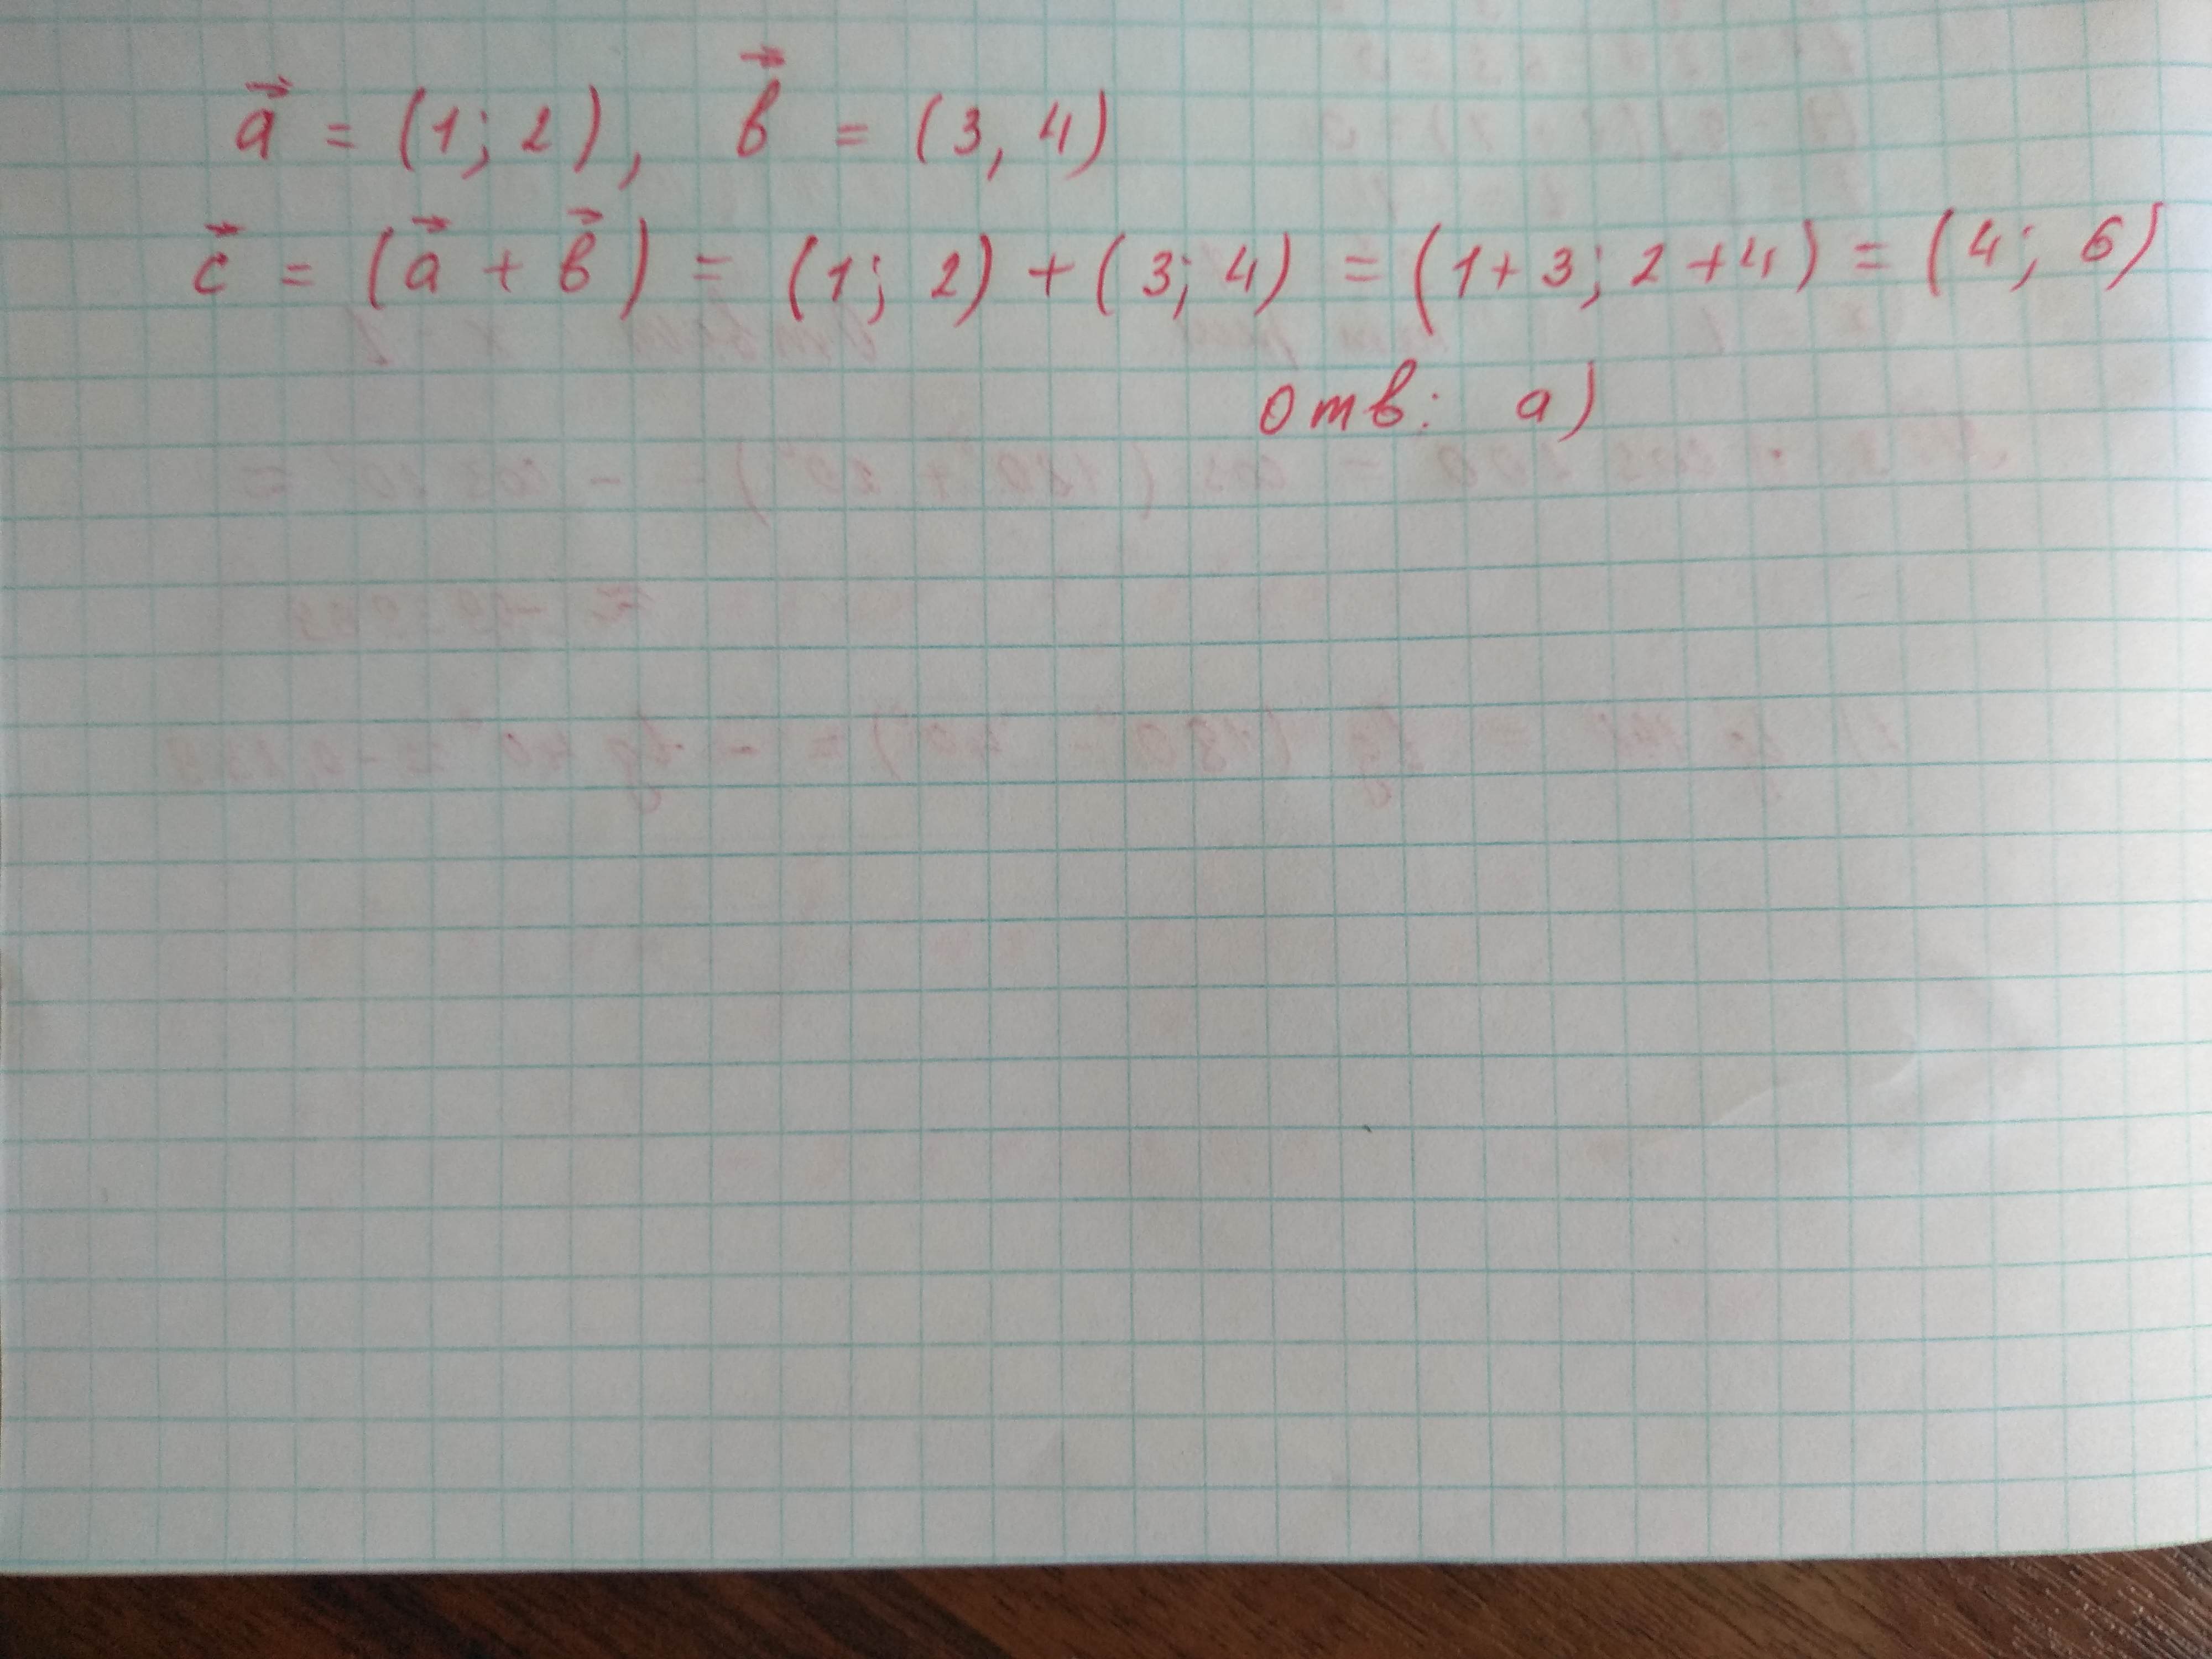 a⃗ = (1; 2), b⃗ = (3, 4)
c⃗ = (a⃗ + b⃗) = (1; 2) + (3; 4) = (1+3; 2+4) = (4; 6)
отв: а)